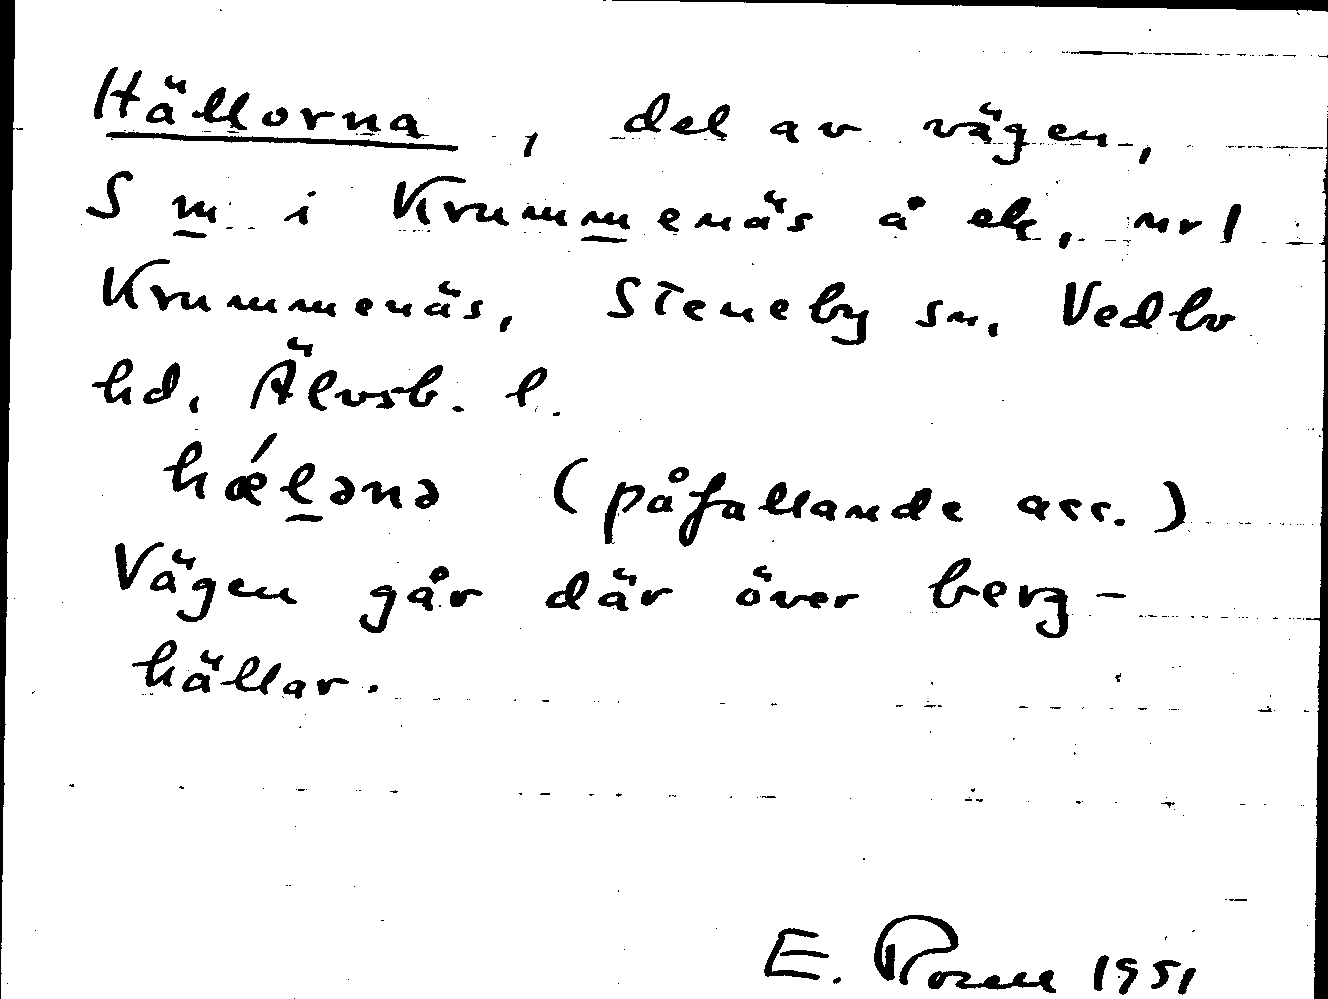 Hällorna, del av vägen,
S m i Krummenäs å ek, nr 1
Krummenäs, Steneby sn, Vedbo
hd, Älvsb. l.
hǽlənə (påfallande acc.)
Vägen går där över berg-
hällar.
E. Rosen 1951